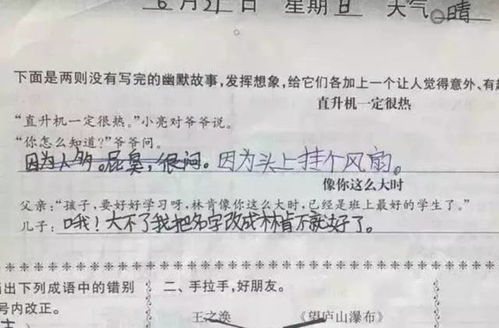 6 月 21 日 星期 日 天气 晴
下面是两则没有写完的幽默故事,发挥想象,给它们各加上一个让人觉得意外、有
直升机一定很热
“直升机一定很热。”小亮对爷爷说。
“你怎么知道?”爷爷问。
因为人多。屁臭,很闷。因为头上挂个风扇。
像你这么大时
父亲:“孩子,要好好学习呀,林肯像你这么大时,已经是班上最好的学生了。”
儿子:哦!大不了我把名字改成林肯不就好了。
出下列成语中的错别
二、手拉手,好朋友。
号内改正。
王之涣 《望庐山瀑布》